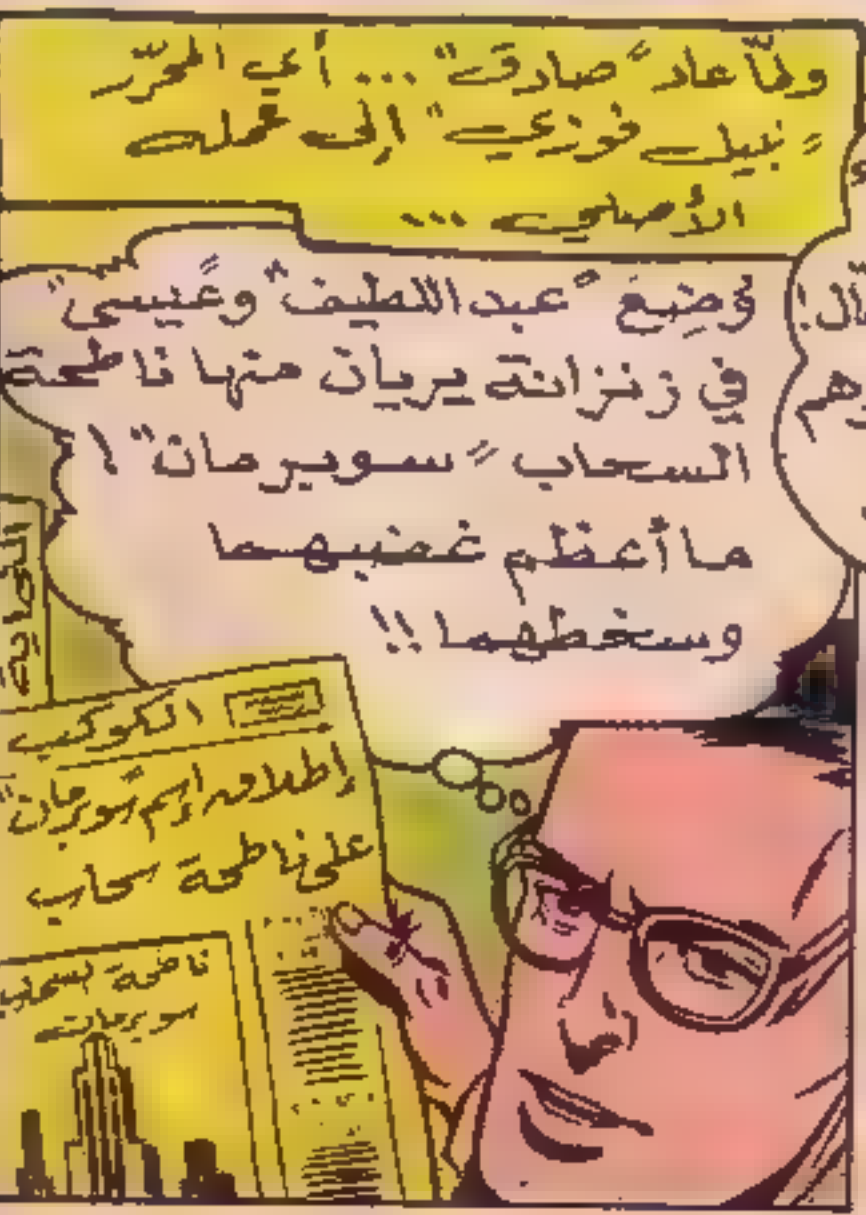 ولمّا عاد "صادق" ... أي المحرّر
"نبيل فوزي" إلى عمله
الأصلي ...
وُضِعَ "عبد اللطيف" و"عيسى"
في زنزانة يريان منها ناطحة
السحاب "سوبرمان"!
ما أعظم غضبهما
وسخطهما!!
الكوكب
إطلاق إسم "سوبرمان"
على ناطحة سحاب
ناطحة السحاب
سوبرمان